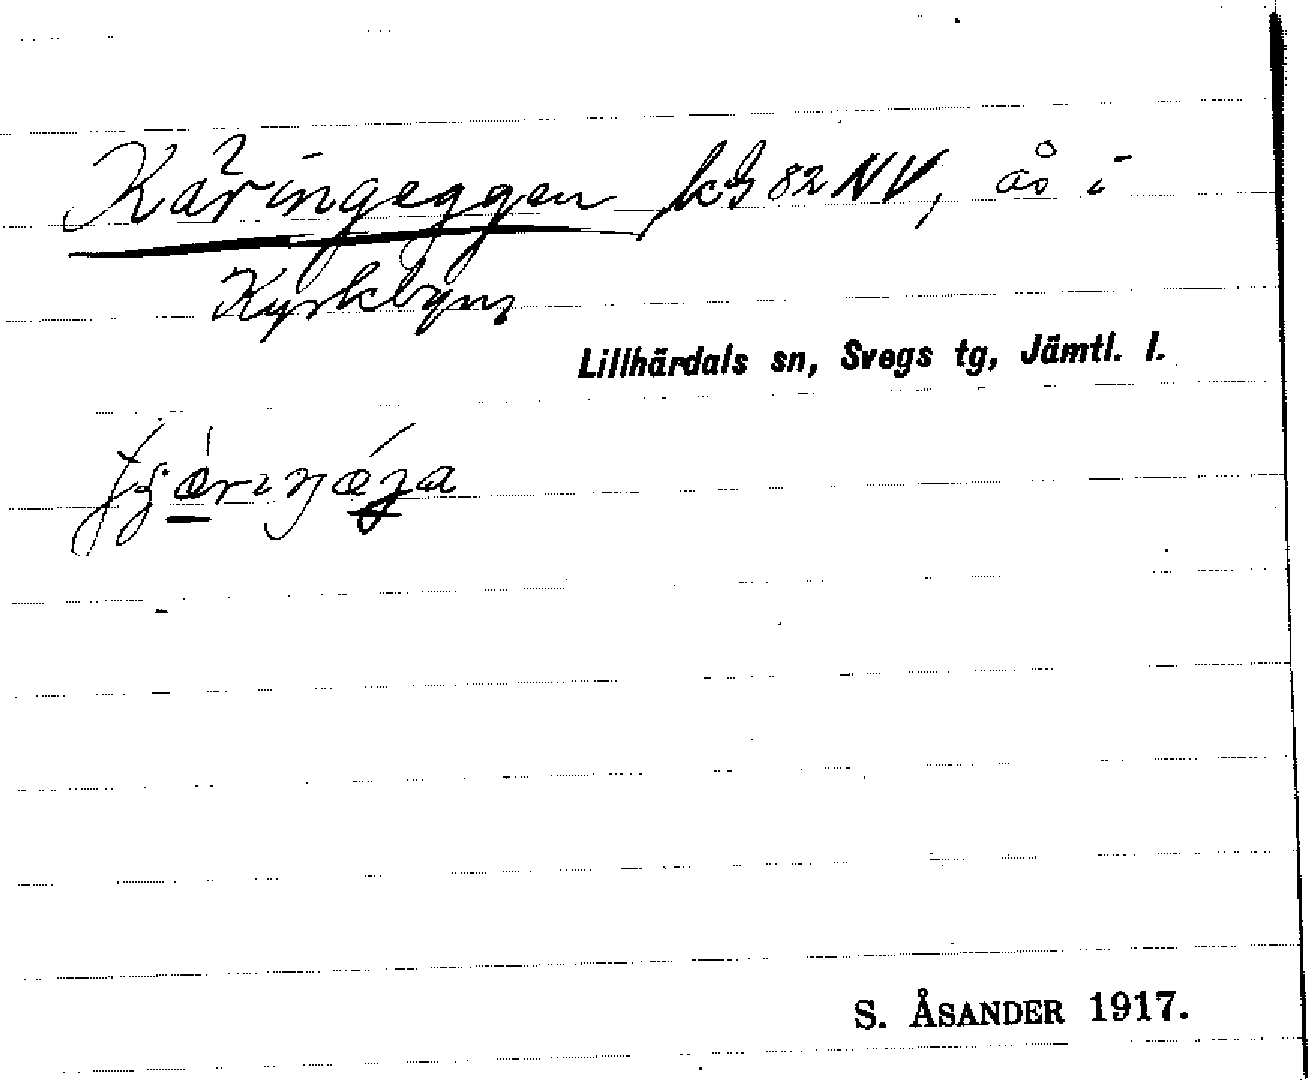 Käringeggen kg 82 NV, ås i
Kyrkbyns
Lillhärdals sn, Svegs tg, Jämtl. l.
S. ÅSANDER 1917.